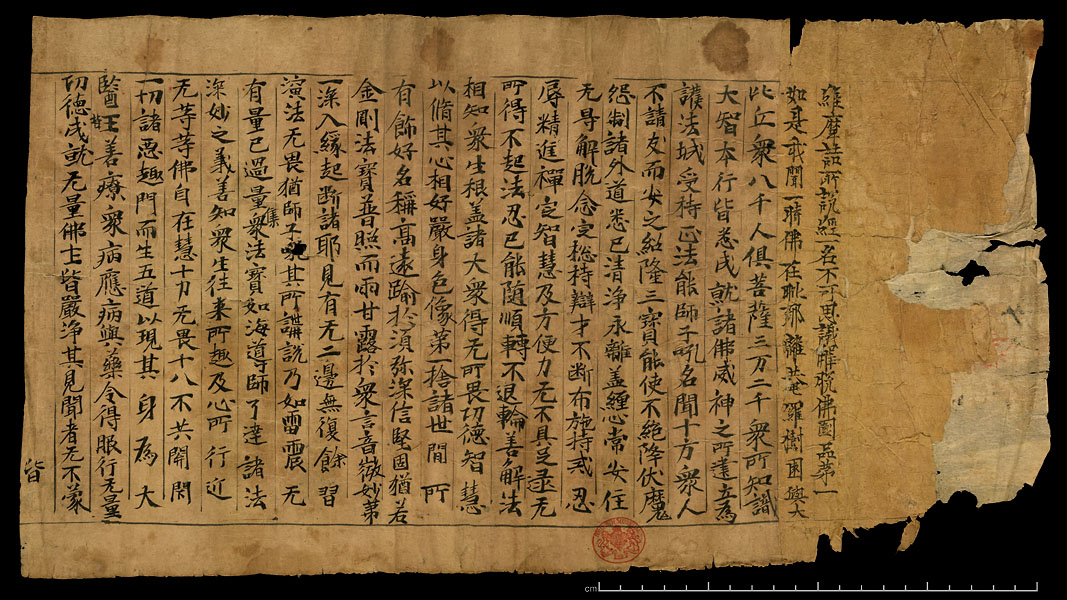 維摩詰所說經一名不可思議解脫佛國品第一
如是我聞一時佛在毗耶離菴羅樹園與大
比丘衆八千人俱菩薩三万二千衆所知識
大智本行皆悉成就諸佛威神之所建立為
護法城受持正法能師子吼名聞十方衆人
不請友而安之紹隆三寳能使不絕降伏魔
怨制諸外道悉已清淨永離盖纏心常安住
无㝵解脫念定揔持辯才不斷布施持戒忍
辱精進禪定智慧及方便力无不具足逮无
所得不起法忍已能随順轉不退輪善解法
相知衆生根盖諸大衆得无所畏功德智慧
以脩其心相好嚴身色像第一捨諸世間所
有飾好名稱高遠踰於湏弥深信堅固猶若
金剛法寳普照而雨甘露於衆言音微妙第
一深入緣起斷諸耶見有无二邊無復餘習
演法无畏猶師子吼其所講說乃如雷震无
有量已過量集衆法寳如海導師了達諸法
深妙之義善知衆生往來所趣及心所行近
无等等佛自在慧十力无畏十八不共開閇
一切諸惡趣門而生五道以現其身為大
醫王善療衆病應病與藥令得服行无量
功德皆成就无量佛土皆嚴净其見聞者无不蒙
皆
cm